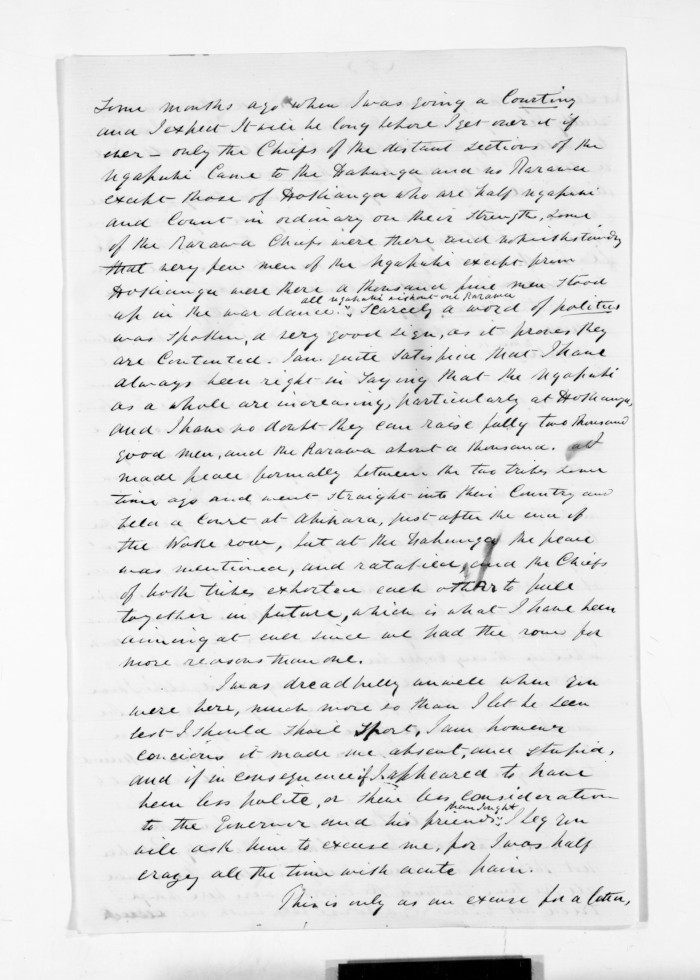 Some months ago when I was going a Courting
and I expect It will be long before I get over it if
ever – only the Chiefs of the distant sections of the
Ngapuhi Came to the Hahunga and no Rarawa
except those of Hokianga who are half Ngapuhi
and Count in ordinary on their strength, Some
of the Rarawa Chiefs were there and notwithstanding
that very few men of the Ngapuhi except from
Hokianga were there a thousand fine men stood
all ngapuhi without one Rarawa
up in the war dance. Scarcely a word of politics
was spoken, a very good sign, as it proves they
are Contented. I am quite satisfied that I have
always been right in Saying that the Ngapuhi
as a whole are increasing, particularly at Hokianga,
and I have no doubt they can raise fully two thousand
good men, and the Rarawa about a thousand.
made peace formally between the two tribes some
time ago and went straight into their Country and
held a Court at Ahipara, just after the end of
the row, but at the Hahunga the peace
was mentioned, and ratafied, and the Chiefs
of both tribes exhorted each other to pull
together in future, which is what I have been
aiming at ever since we had the row for
more reasons than one.
I was dreadfully unwell when you
were here, much more so than I let be seen
lest I should Spoil Sport, I am however
concious it made me absent, and stupid,
and if in consequence if I appeared to have
been less polite, or shew less consideration
than I ought
to the Governor and his friends, I beg you
will ask him to excuse me, for I was half
crazy all the time with acute pain.
This is only as an excuse for a letter,